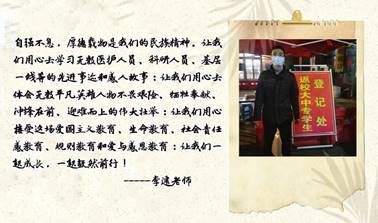 自强不息，厚德载物是我们的民族精神。让我
们用心去学习无数医护人员、科研人员、基层
一线等的先进事迹和感人故事；让我们用心去
体会无数平凡英雄人物不畏艰险、牺牲奉献、
冲锋在前、迎难而上的伟大壮举；让我们用心
接受这场爱国主义教育、生命教育、社会责任
感教育、规则教育和爱与感恩教育；让我们一
起成长，一起毅然前行！
-----李遠老师
登记处
返校大中专学生